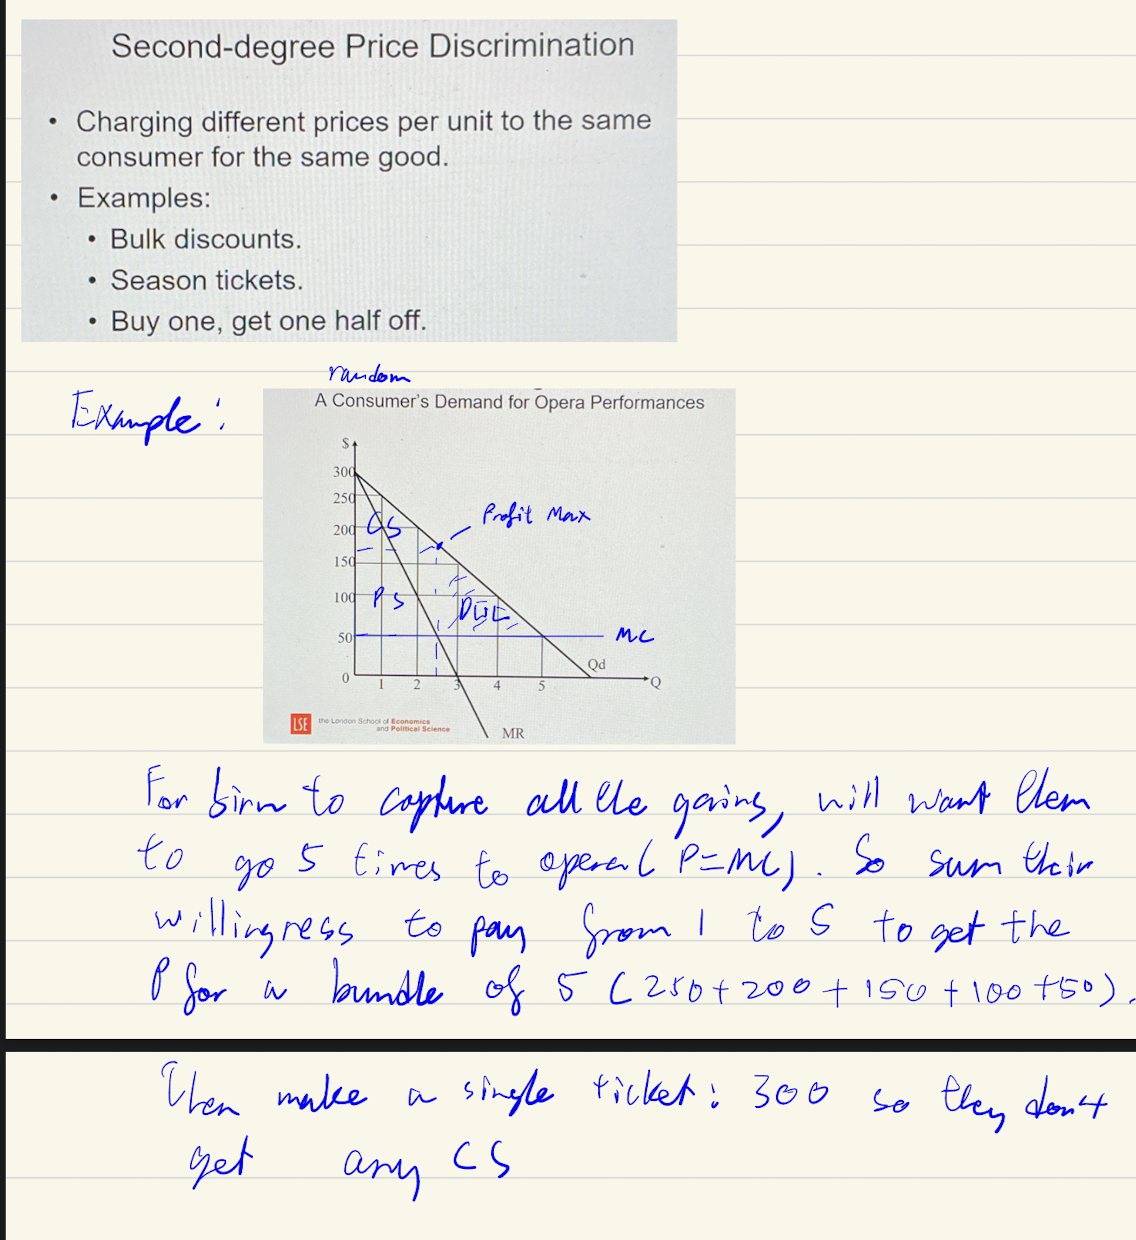 Second-degree Price Discrimination
• Charging different prices per unit to the same
consumer for the same good.
• Examples:
• Bulk discounts.
• Season tickets.
• Buy one, get one half off.
random
Example:
A Consumer's Demand for Opera Performances
$
300
250
200
150
100
50
0
1
2
3
4
5
Q
CS
PS
DWL
Profit Max
MC
Qd
MR
LSE
the London School of Economics
and Political Science
For firm to capture all the gains, will want them
to go 5 times to opera (P=MC). So sum their
willingness to pay from 1 to 5 to get the
P for a bundle of 5 (250+200+150+100+50).
Then make a single ticket: 300 so they don't
get any CS